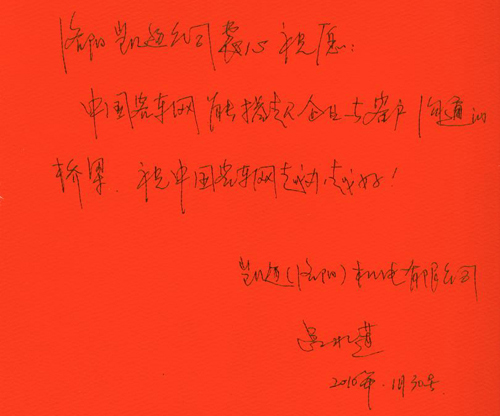 洛阳凯迈公司衷心祝愿:
中国客车网能搭起企业与客户沟通的
桥梁. 祝中国客车网越办越好!
凯迈(洛阳)机电有限公司
2010年.11月30号